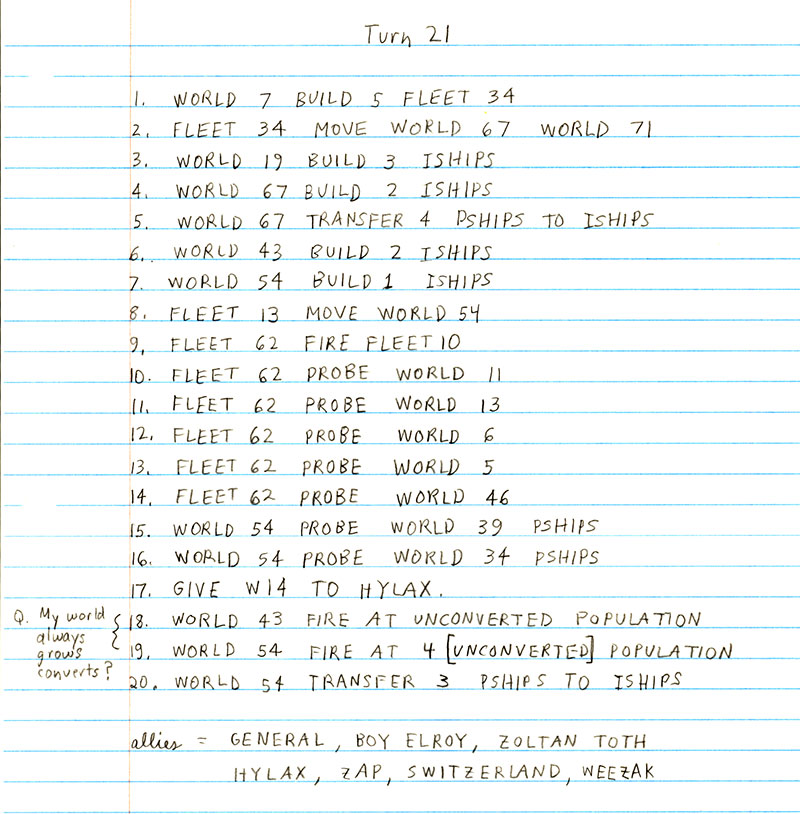 Turn 21
1. WORLD 7 BUILD 5 FLEET 34
2. FLEET 34 MOVE WORLD 67 WORLD 71
3. WORLD 19 BUILD 3 ISHIPS
4. WORLD 67 BUILD 2 ISHIPS
5. WORLD 67 TRANSFER 4 PSHIPS TO ISHIPS
6. WORLD 43 BUILD 2 ISHIPS
7. WORLD 54 BUILD 1 ISHIPS
8. FLEET 13 MOVE WORLD 54
9, FLEET 62 FIRE FLEET 10
10. FLEET 62 PROBE WORLD 11
11. FLEET 62 PROBE WORLD 13
12. FLEET 62 PROBE WORLD 6
13. FLEET 62 PROBE WORLD 5
14. FLEET 62 PROBE WORLD 46
15. WORLD 54 PROBE WORLD 39 PSHIPS
16. WORLD 54 PROBE WORLD 34 PSHIPS
17. GIVE W14 TO HYLAX.
Q. My world
always
grows
converts?
18. WORLD 43 FIRE AT UNCONVERTED POPULATION
19. WORLD 54 FIRE AT 4 [UNCONVERTED] POPULATION
20. WORLD 54 TRANSFER 3 PSHIPS TO ISHIPS
allies = GENERAL, BOY ELROY, ZOLTAN TOTH
HYLAX, ZAP, SWITZERLAND, WEEZAK